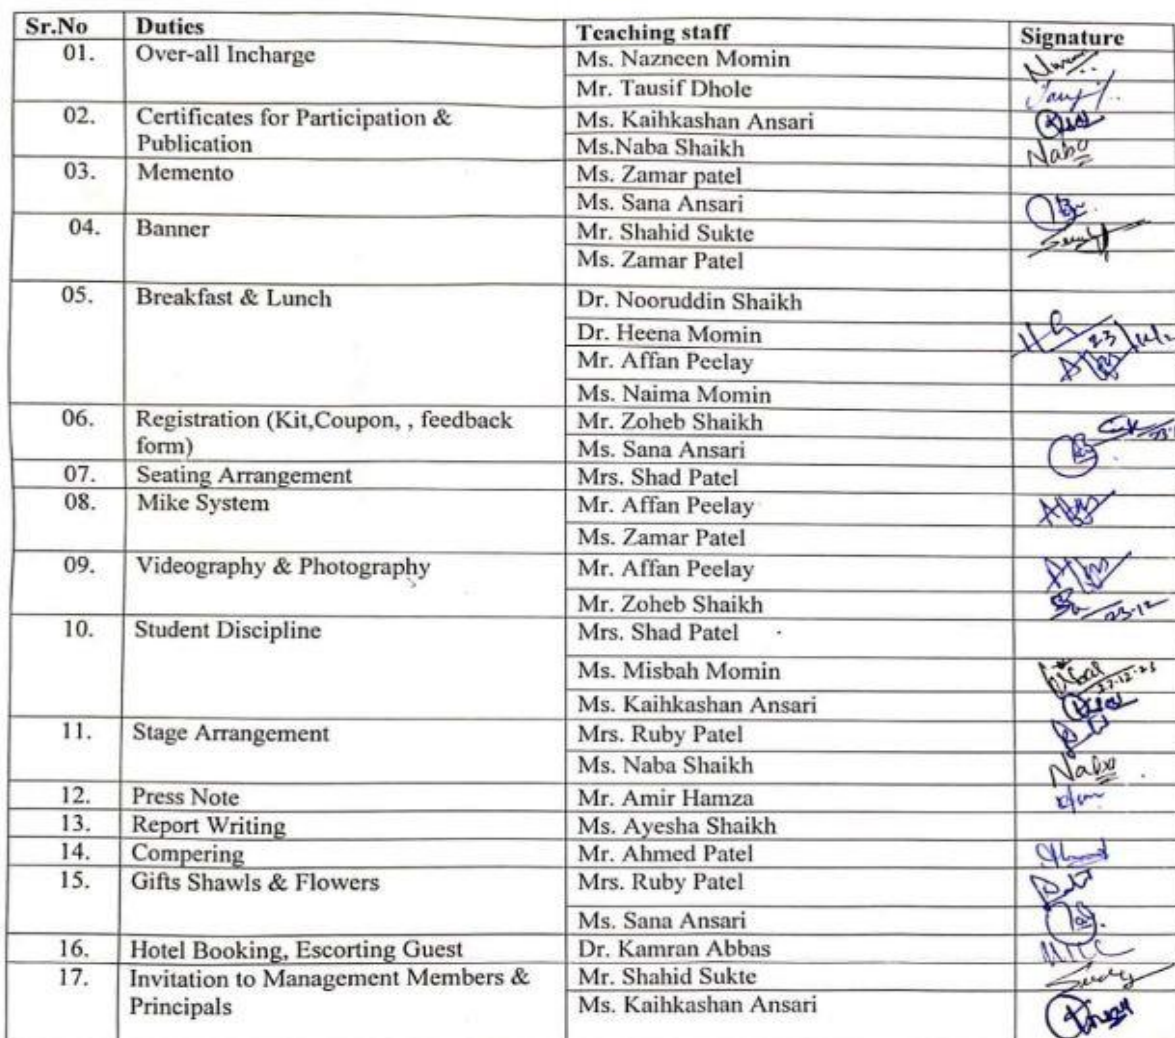 Sr.No Duties Teaching staff Signature
01. Over-all Incharge Ms. Nazneen Momin
Mr. Tausif Dhole
02. Certificates for Participation & Ms. Kaihkashan Ansari
Publication Ms.Naba Shaikh Naba
03. Memento Ms. Zamar patel
Ms. Sana Ansari
04. Banner Mr. Shahid Sukte
Ms. Zamar Patel
05. Breakfast & Lunch Dr. Nooruddin Shaikh
Dr. Heena Momin
Mr. Affan Peelay
Ms. Naima Momin
06. Registration (Kit,Coupon, , feedback Mr. Zoheb Shaikh
form) Ms. Sana Ansari
07. Seating Arrangement Mrs. Shad Patel
08. Mike System Mr. Affan Peelay
Ms. Zamar Patel
09. Videography & Photography Mr. Affan Peelay
Mr. Zoheb Shaikh 23-12
10. Student Discipline Mrs. Shad Patel
Ms. Misbah Momin
Ms. Kaihkashan Ansari
11. Stage Arrangement Mrs. Ruby Patel
Ms. Naba Shaikh Naba
12. Press Note Mr. Amir Hamza
13. Report Writing Ms. Ayesha Shaikh
14. Compering Mr. Ahmed Patel
15. Gifts Shawls & Flowers Mrs. Ruby Patel
Ms. Sana Ansari
16. Hotel Booking, Escorting Guest Dr. Kamran Abbas
17. Invitation to Management Members & Mr. Shahid Sukte
Principals Ms. Kaihkashan Ansari